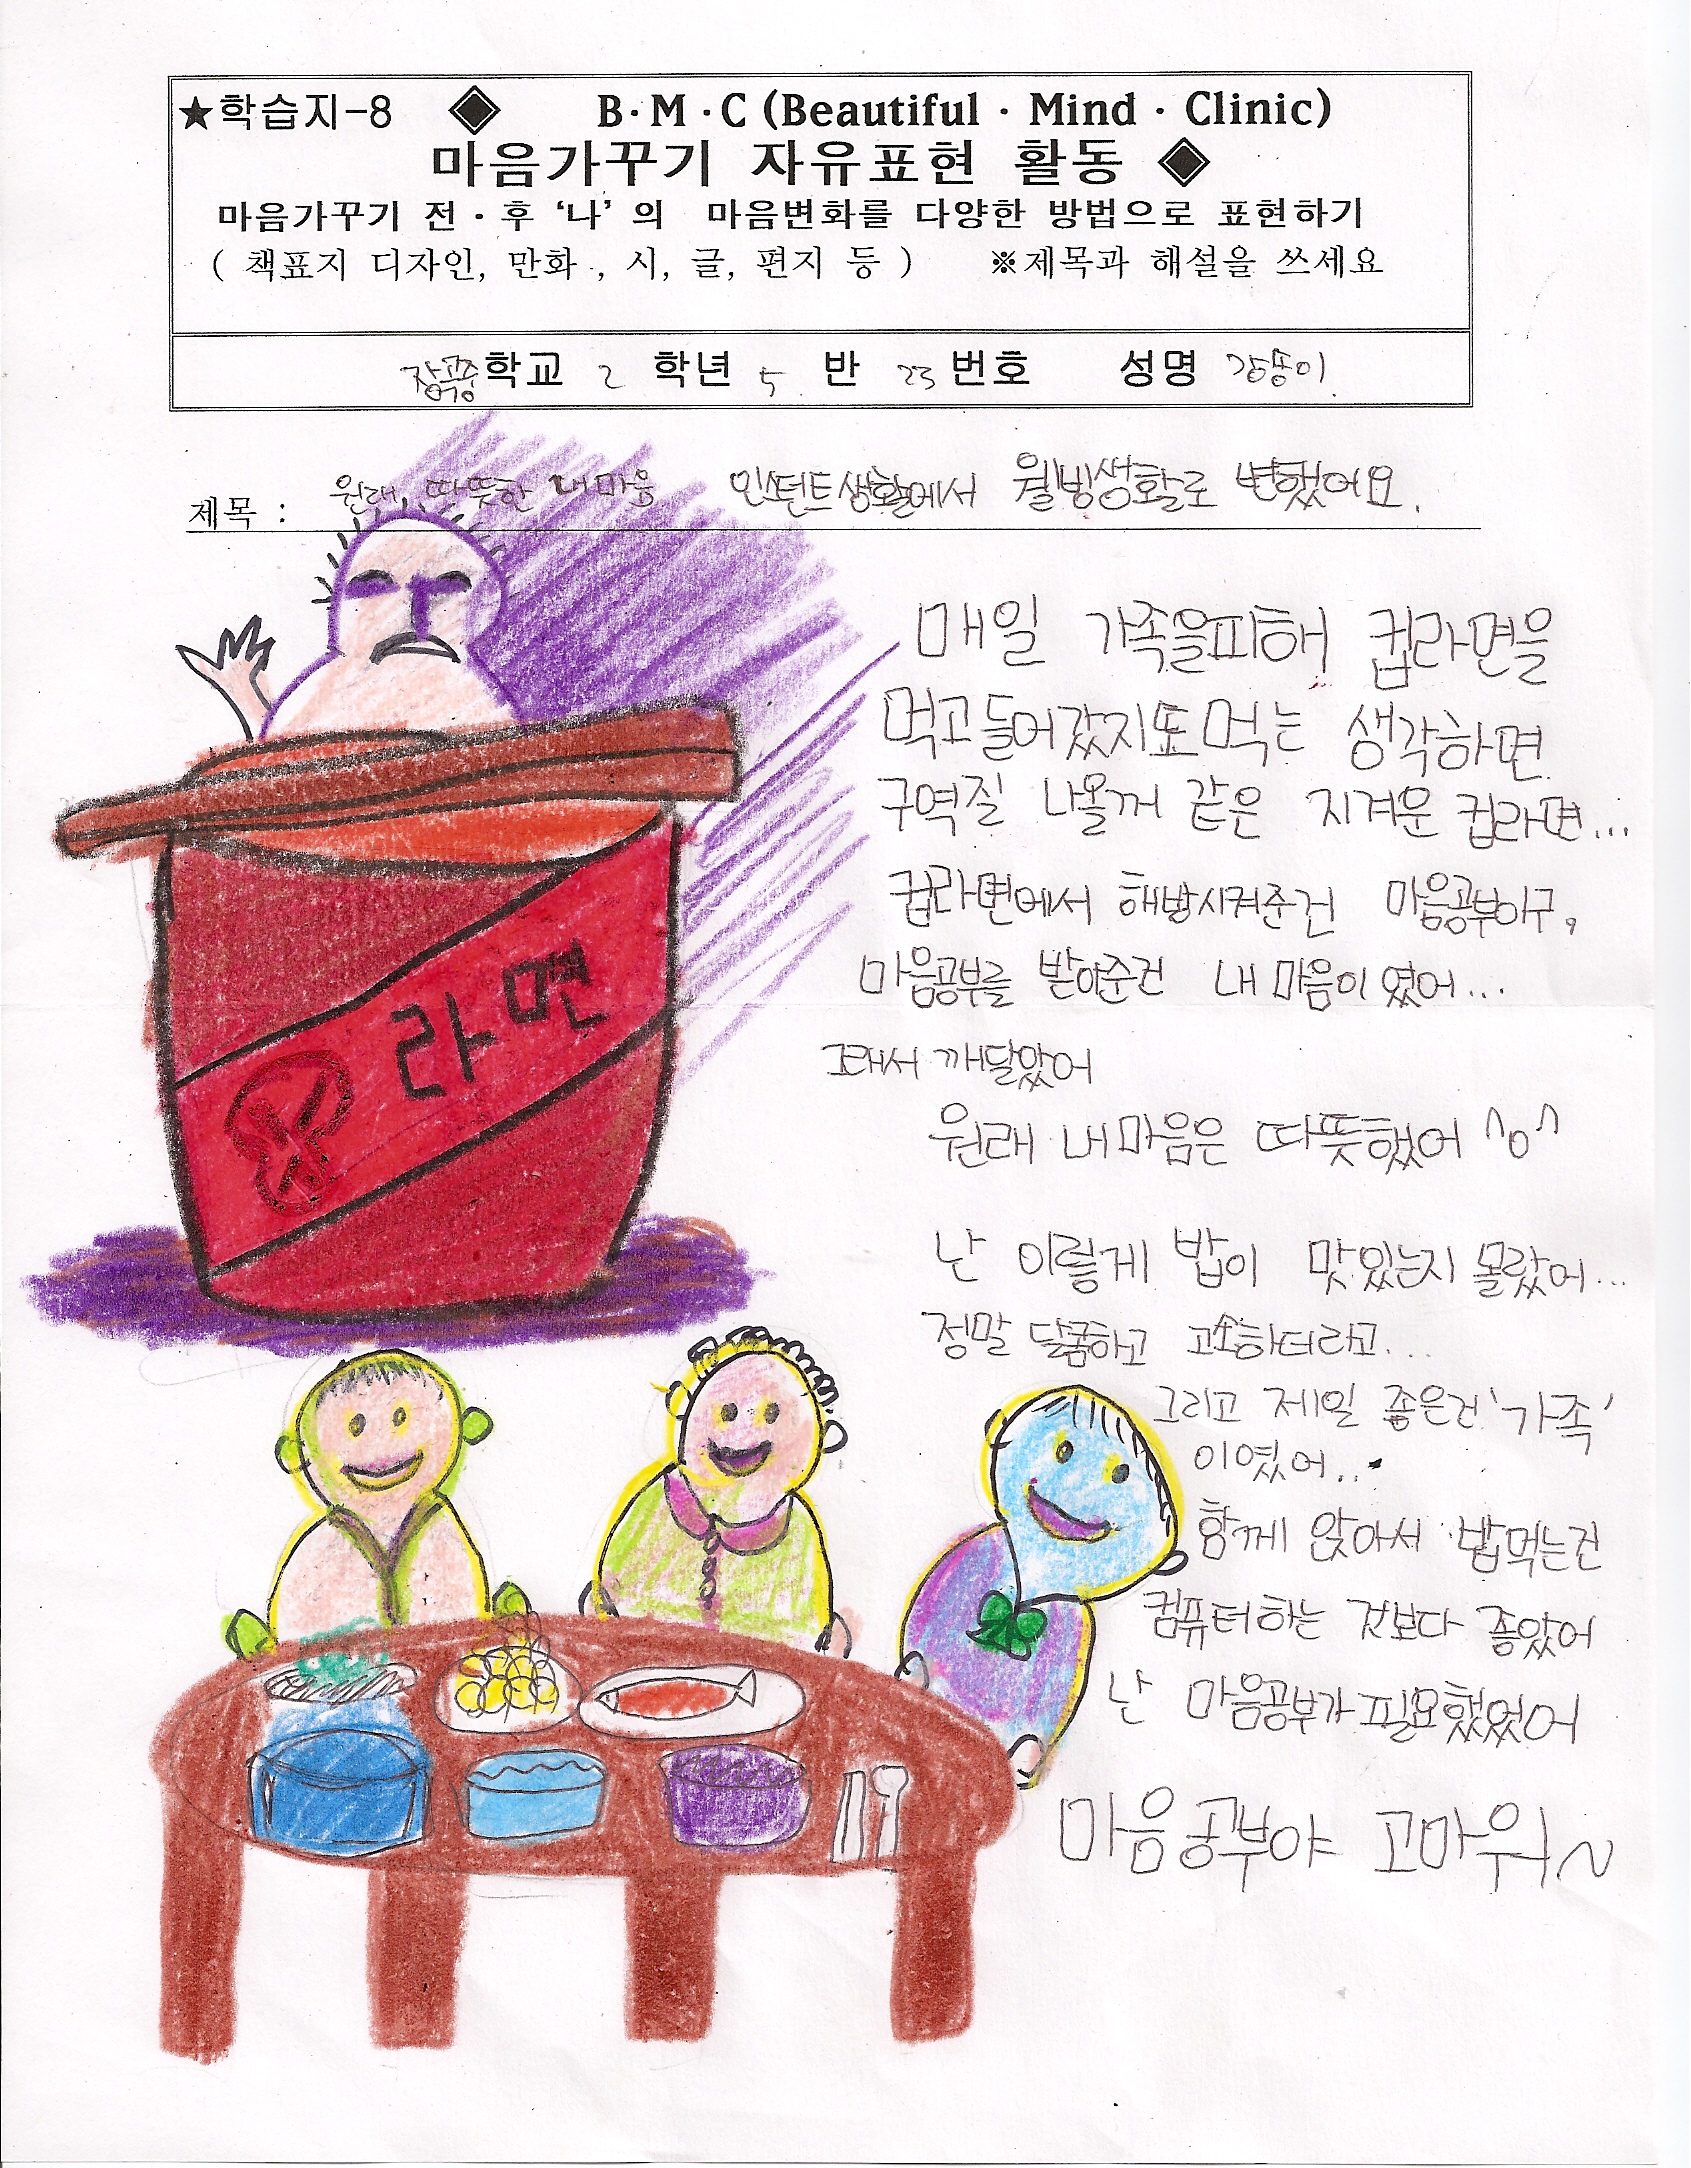 ★학습지-8 ◈ B·M·C (Beautiful · Mind · Clinic)
마음가꾸기 자유표현 활동 ◈
마음가꾸기 전·후 '나' 의 마음변화를 다양한 방법으로 표현하기
( 책표지 디자인, 만화 , 시, 글, 편지 등 ) ※제목과 해설을 쓰세요
학교 2 학년 5 반 23 번호 성명
제목 : 원래, 따뜻한 내마음 인스턴트생활에서 웰빙생활로 변했어요.
매일 가족을피해 컵라면을
먹고들어갔지또먹는 생각하면
구역질 나올꺼 같은 지겨운 컵라면...
컵라면에서 해방시켜준건 마음공부이구,
마음공부를 받아준건 내마음이였어...
라면
그래서 깨달았어
원래 내마음은 따뜻했어 ^o^
난 이렇게 밥이 맛있는지 몰랐어...
정말 달콤하고 고소하더라고...
그리고 제일 좋은건 '가족'
이였어...
함께 앉아서 밥먹는건
컴퓨터하는 것보다 좋았어
난 마음공부가 필요했었어
마음공부야 고마워~